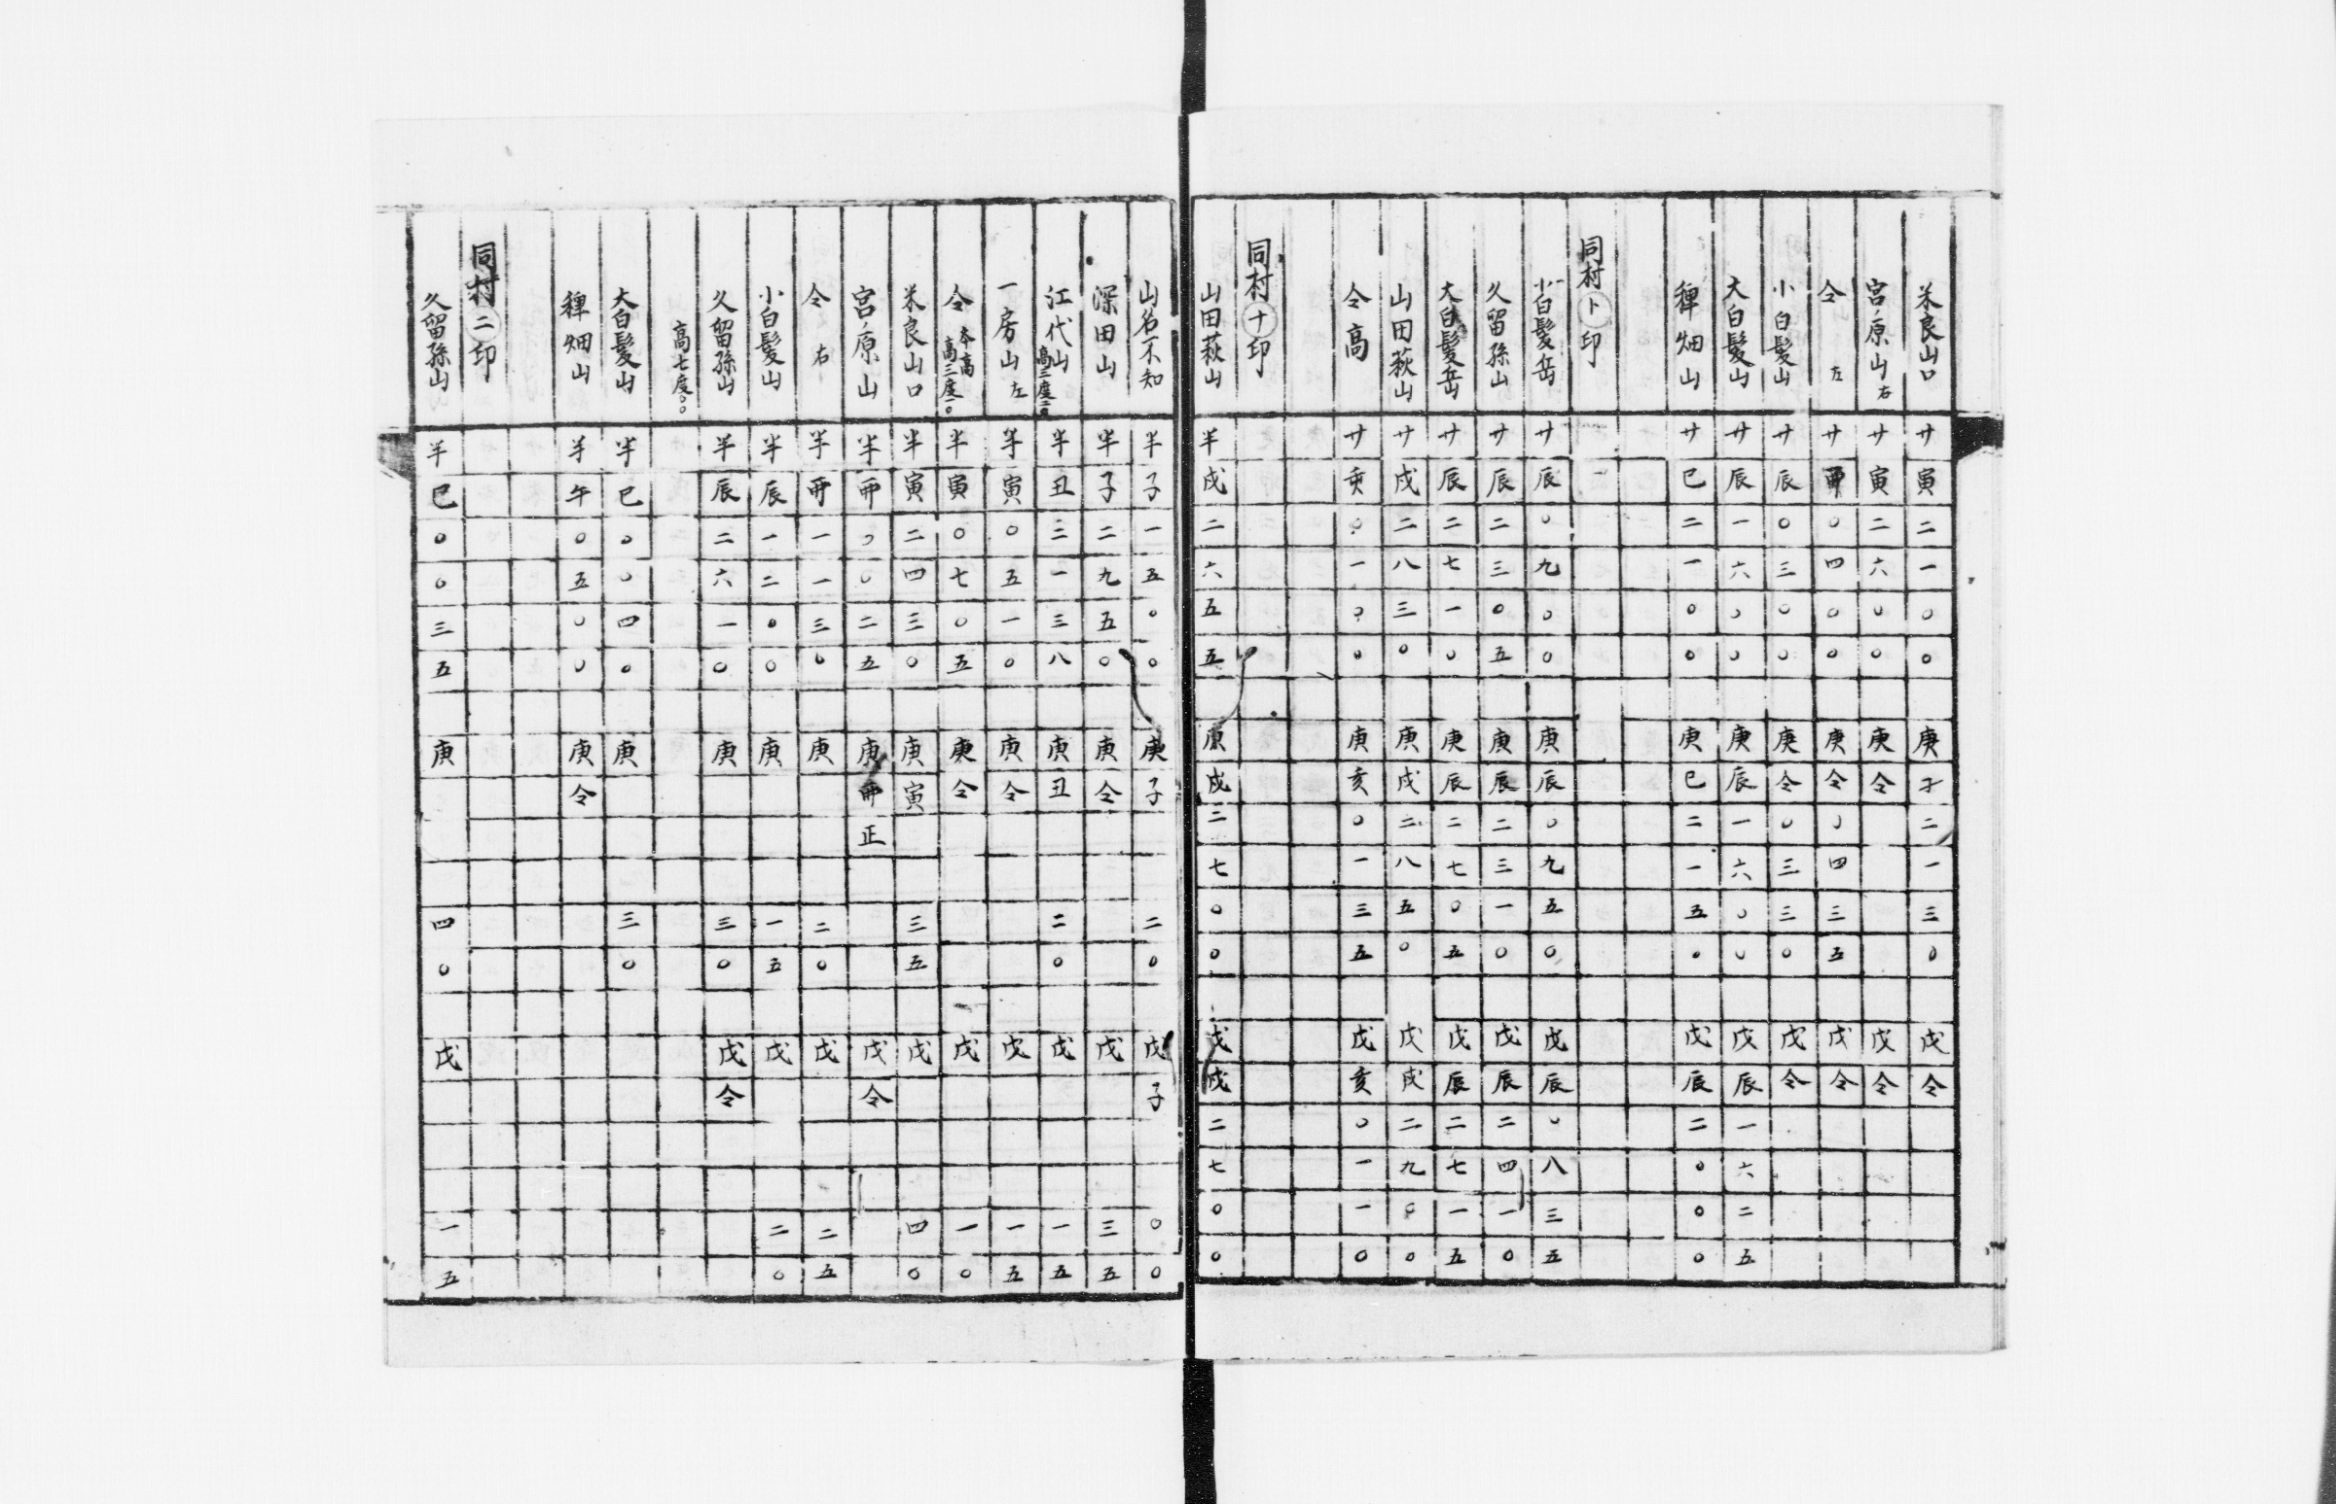 米良山口 廿寅二一〇〇 庚子二一三〇 戊令
宮ノ原山右 廿寅二六〇〇 庚令 戊令
令左 廿丣〇四〇〇 庚令〇四三五 戊令
小白髪山 廿辰〇三〇〇 庚令〇三三〇 戊令
大白髪山 廿辰一六〇〇 庚辰一六〇〇 戊辰一六二五
稗畑山 廿巳二一〇〇 庚巳二一五〇 戊辰二〇〇〇
同村ト印
小白髪岳 廿辰〇九〇〇 庚辰〇九五〇 戊辰〇八三五
久留孫山 廿辰二三〇五 庚辰二三一〇 戊辰二四一〇
大白髪岳 廿辰二七一〇 庚辰二七〇五 戊辰二七一五
山田萩山 廿戌二八三〇 庚戌二八五〇 戊戌二九〇〇
令高 廿亥〇一〇〇 庚亥〇一三五 戊亥〇一一〇
同村十印
山田萩山 半戌二六五五 庚戌二七〇〇 戊戌二七〇〇
山名不知 半子一五〇〇 庚子二〇 戊子〇〇
深田山 半子二九五〇 庚令 戊三五
江代山高三度二〇 半丑二一三八 庚丑二〇 戊一五
一房山左 半寅〇五一〇 庚令 戊一五
令本高高三度一〇 半寅〇七〇五 庚令 戊一〇
米良山口 半寅二四三〇 庚寅三五 戊四〇
宮ノ原山 半丣〇〇二五 庚丣正 戊令
令右 半丣一一三〇 庚二〇 戊二五
小白髪山 半辰一二〇〇 庚一五 戊二〇
久留孫山 半辰二六一〇 庚三〇 戊令
高七度〇〇
大白髪山 半巳〇〇四〇 庚三〇
稗畑山 半午〇五〇〇 庚令
同村二印
久留孫山 半巳〇〇三五 庚四〇 戊一五